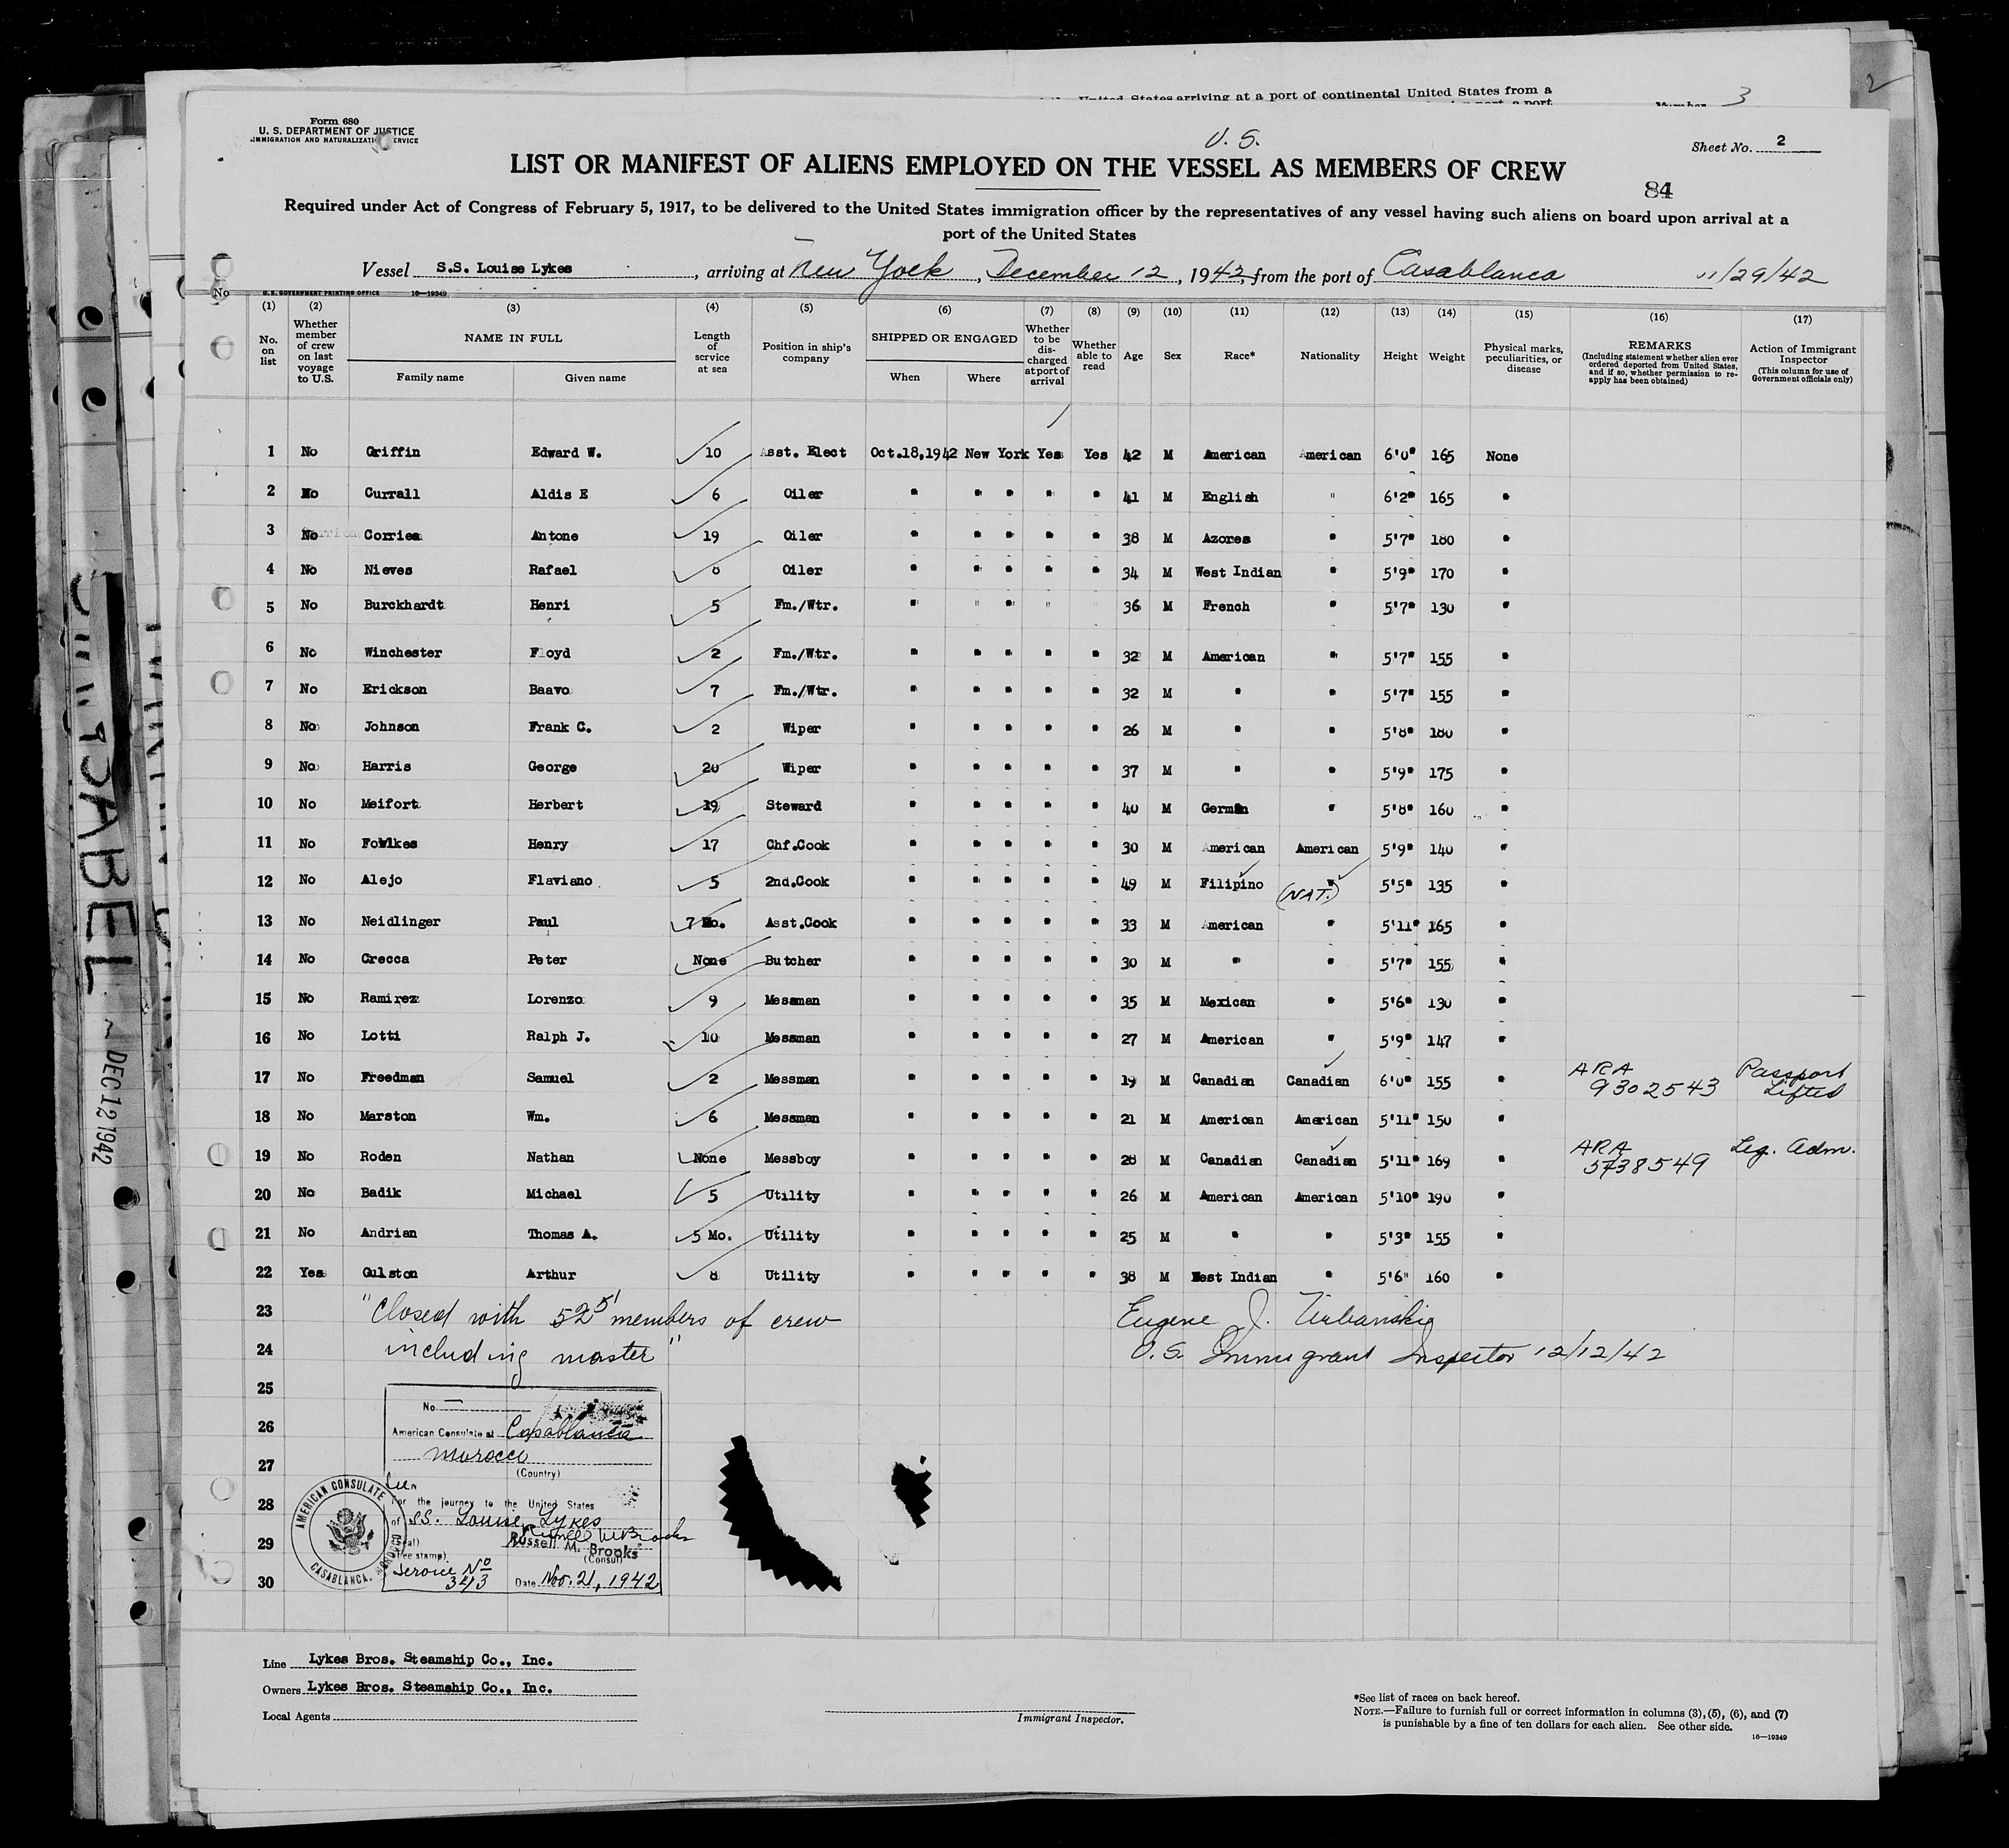 United States arriving at a port of continental United States from a
3
2
Form 680
U. S. DEPARTMENT OF JUSTICE
IMMIGRATION AND NATURALIZATION SERVICE
U. S.
Sheet No. 2
LIST OR MANIFEST OF ALIENS EMPLOYED ON THE VESSEL AS MEMBERS OF CREW
84
Required under Act of Congress of February 5, 1917, to be delivered to the United States immigration officer by the representatives of any vessel having such aliens on board upon arrival at a
port of the United States
Vessel S.S. Louise Lykes, arriving at New York, December 12, 1942, from the port of Casablanca 11/29/42
No U. S. GOVERNMENT PRINTING OFFICE 16—19349
(1) (2) (3) (4) (5) (6) (7) (8) (9) (10) (11) (12) (13) (14) (15) (16) (17)
No. on list
Whether member of crew on last voyage to U.S.
NAME IN FULL
Family name Given name
Length of service at sea
Position in ship's company
SHIPPED OR ENGAGED
When Where
Whether to be discharged at port of arrival
Whether able to read
Age
Sex
Race*
Nationality
Height
Weight
Physical marks, peculiarities, or disease
REMARKS
(Including statement whether alien ever ordered deported from United States, and if so, whether permission to reapply has been obtained)
Action of Immigrant Inspector
(This column for use of Government officials only)
1 No Griffin Edward W. 10 Asst. Elect Oct.18,1942 New York Yes Yes 42 M American American 6'0" 165 None
2 No Currall Aldis E 6 Oiler " " " " " 41 M English " 6'2" 165 "
3 No Corriea Antone 19 Oiler " " " " " 38 M Azores " 5'7" 180 "
4 No Nieves Rafael 8 Oiler " " " " " 34 M West Indian " 5'9" 170 "
5 No Burckhardt Henri 5 Fm./Wtr. " " " " 36 M French " 5'7" 130 "
6 No Winchester Floyd 2 Fm./Wtr. " " " " " 32 M American " 5'7" 155 "
7 No Erickson Baavo 7 Fm./Wtr. " " " " " 32 M " " 5'7" 155 "
8 No Johnson Frank C. 2 Wiper " " " " " 26 M " " 5'8" 180 "
9 No Harris George 20 Wiper " " " " " 37 M " " 5'9" 175 "
10 No Meifort Herbert 19 Steward " " " " " 40 M German " 5'8" 160 "
11 No Fowlkes Henry 17 Chf.Cook " " " " " 30 M American American 5'9" 140 "
12 No Alejo Flaviano 5 2nd.Cook " " " " " 49 M Filipino " (NAT.) 5'5" 135 "
13 No Neidlinger Paul 7 Mo. Asst.Cook " " " " " 33 M American " 5'11" 165 "
14 No Crecca Peter None Butcher " " " " " 30 M " " 5'7" 155 "
15 No Ramirez Lorenzo 9 Messman " " " " " 35 M Mexican " 5'6" 130 "
16 No Lotti Ralph J. 10 Messman " " " " " 27 M American " 5'9" 147 "
17 No Freedman Samuel 2 Messman " " " " " 19 M Canadian Canadian 6'0" 155 " ARA 9302543 Passport Lifted
18 No Marston Wm. 6 Messman " " " " " 21 M American American 5'11" 150 "
19 No Roden Nathan None Messboy " " " " " 28 M Canadian Canadian 5'11" 169 " ARA 5738549 Leg. Adm.
20 No Badik Michael 5 Utility " " " " " 26 M American American 5'10" 190 "
21 No Andrian Thomas A. 5 Mo. Utility " " " " " 25 M " " 5'3" 155 "
22 Yes Gulston Arthur 8 Utility " " " " " 38 M West Indian " 5'6" 160 "
23 "Closed with 52 members of crew Eugene J. Urbanski
24 including master" U.S. Immigrant Inspector 12/12/42
25
26
27
28
29
30
No. —
American Consulate at Casablanca
Morocco
(Country)
For the journey to the United States
of SS. Louise Lykes
Russell M. Brooks
Russell M. Brooks
(Consul)
(Fee stamp)
Service No 343
Date Nov. 21, 1942
AMERICAN CONSULATE
CASABLANCA. MOROCCO
Line Lykes Bros. Steamship Co., Inc.
Owners Lykes Bros. Steamship Co., Inc.
Local Agents
Immigrant Inspector.
*See list of races on back hereof.
NOTE.—Failure to furnish full or correct information in columns (3), (5), (6), and (7)
is punishable by a fine of ten dollars for each alien. See other side.
16—19349
DEC 12 1942